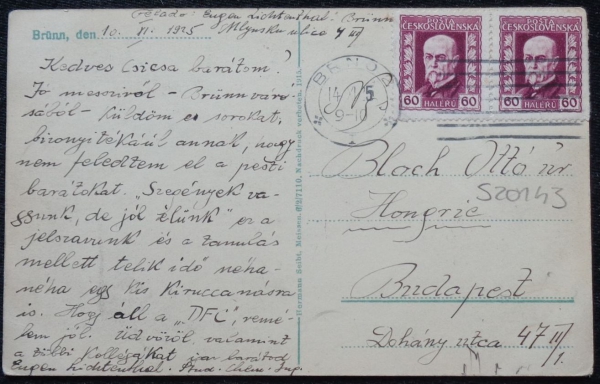 Feladó: Eugen Lichtenthal: Brünn
Mlynska ulice 4 III
Brünn, den 10. XI. 1925
Kedves Csicsa barátom!
Jó messziről - Brünn váro-
sából - küldöm e sorokat,
bizonyítékául annak, hogy
nem feledtem el a pesti
barátokat. "Szegények va-
gyunk, de jól élünk" ez a
jelszavunk és a tanulás
mellett telik idő néha-
néha egy kis kiruccanásra
is. Hogy áll a "DFC", remé-
lem jól. Üdvözöl, valamint
a többi kollégákat igaz barátod
Eugen Lichtenthal. Stud. Chem. Ing.
Hermann Seibt, Meissen. Nachdruck verboten. 1915.
BRNO
14
25
9-10
POŠTA
ČESKOSLOVENSKÁ
60 HALÉŘŮ 60
POŠTA
ČESKOSLOVENSKÁ
60 HALÉŘŮ 60
Bloch Ottó úr
520143
Hongrie
Budapest
Dohány utca 47 III/1.